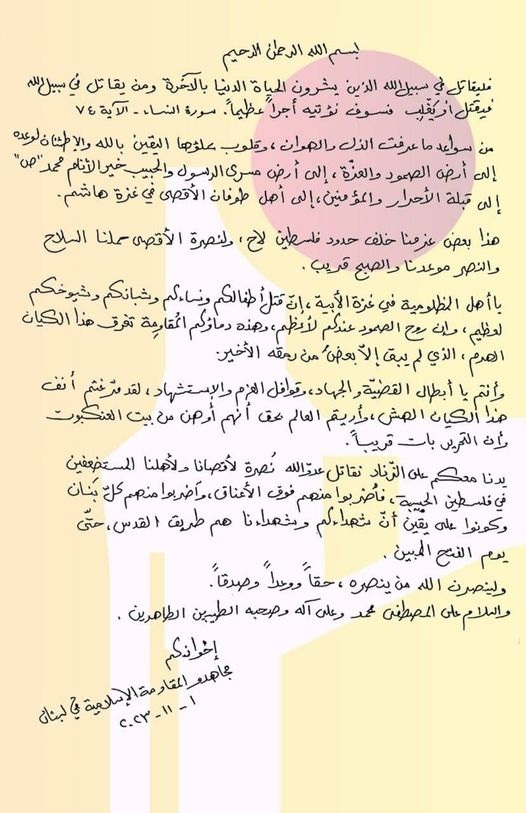 بسم الله الرحمن الرحيم
فليقاتل في سبيل الله الذين يشرون الحياة الدنيا بالآخرة ومن يقاتل في سبيل الله
فيقتل أو يغلب فسوف نؤتيه أجراً عظيماً. سورة النساء - الآية ٧٤
من سواعد ما عرفت الذل والهوان، وقلوب ملؤها اليقين بالله والإطمئنان لوعده
إلى أرض الصمود والعزّة، إلى أرض مسرى الرسول والحبيب خير الأنام محمد "ص"
إلى قبلة الأحرار والمؤمنين، إلى أهل طوفان الأقصى في غزة هاشم.
هذا بعض عزمنا خلف حدود فلسطين لاح، ولنصرة الأقصى حملنا السلاح
والنصر موعدنا والصبح قريب.
يا أهل المظلومية في غزة الأبية، إنّ قتل أطفالكم ونساءكم وشبانكم وشيوخكم
لعظيم، وإن روح الصمود عندكم لأعظم، وهذه دماؤكم المُقاوِمة تغرق هذا الكيان
الهرم، الذي لم يبق إلّا بعضُ من رمقه الأخير.
وأنتم يا أبطال القضيّة والجهاد، وقوافل العزم والإستشهاد، لقد مرّغتم أنف
هذا الكيان الهش، وأريتم العالم بحق أنهم أوهن من بيت العنكبوت
وأن التحرير بات قريباً.
يدنا معكم على الزّناد نقاتل عدوّ الله نُصرة لأقصانا ولأهلنا المستضعفين
في فلسطين الحبيبة، فاضربوا منهم فوق الأعناق، واضربوا منهم كلّ بَنان
وكونوا على يقين أنّ شهداءكم وشهداءنا هم طريق القدس، حتّى
يوم الفتح المبين.
ولينصرن الله من ينصره، حقاً ووعداً وصدقاً.
والسلام على المصطفى محمد وعلى آله وصحبه الطيبين الطاهرين.
إخوانكم
مجاهدو المقاومة الإسلامية في لبنان
١ - ١١ - ٢٠٢٣